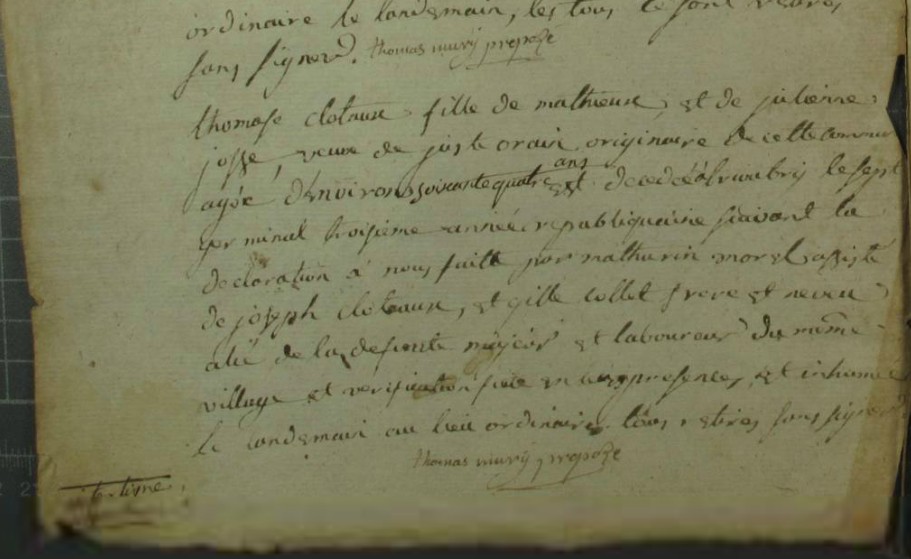 ordinaire le landemain, les tous se sont retirés
sans signer. thomas mury propozé
thomase clotaux fille de mathieux, et de julienne
josse, veuve de juste orain originaire de cette commune
agée d'environ soixante quatre ans est decedée le sept
germinal troisieme année republiquaine suivant la
declaration à nous faitte par mathurin morel assisté
de joseph clotaux, et gille collet frere et neveu
alié de la defunte majeur et laboureur du même
village et verification faite en leurs presences, et inhumée
le landemain au lieu ordinaire. tous retirés sans signer
thomas mury propozé